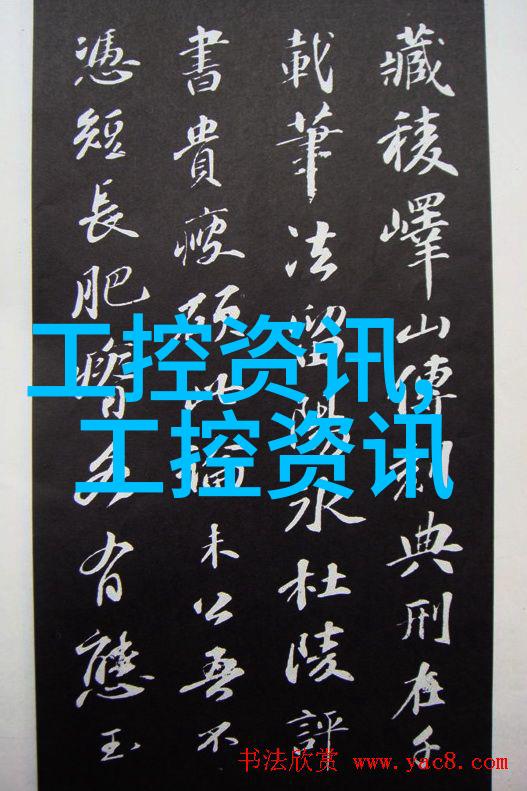 藏稜嶧山傳刻典刑在千
載筆法留陽冰杜陵評
書貴瘦硬此論未公吾不
憑短長肥瘠各有態玉
工控资讯,
工控资讯
书法欣赏 www.yac8.com